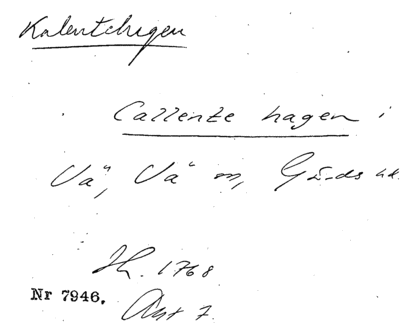 Kalentehagen
Callente hagen i
Vä, Vä sn, Gärds hd.
Hh. 1768
Nr 7946.
Akt 7.